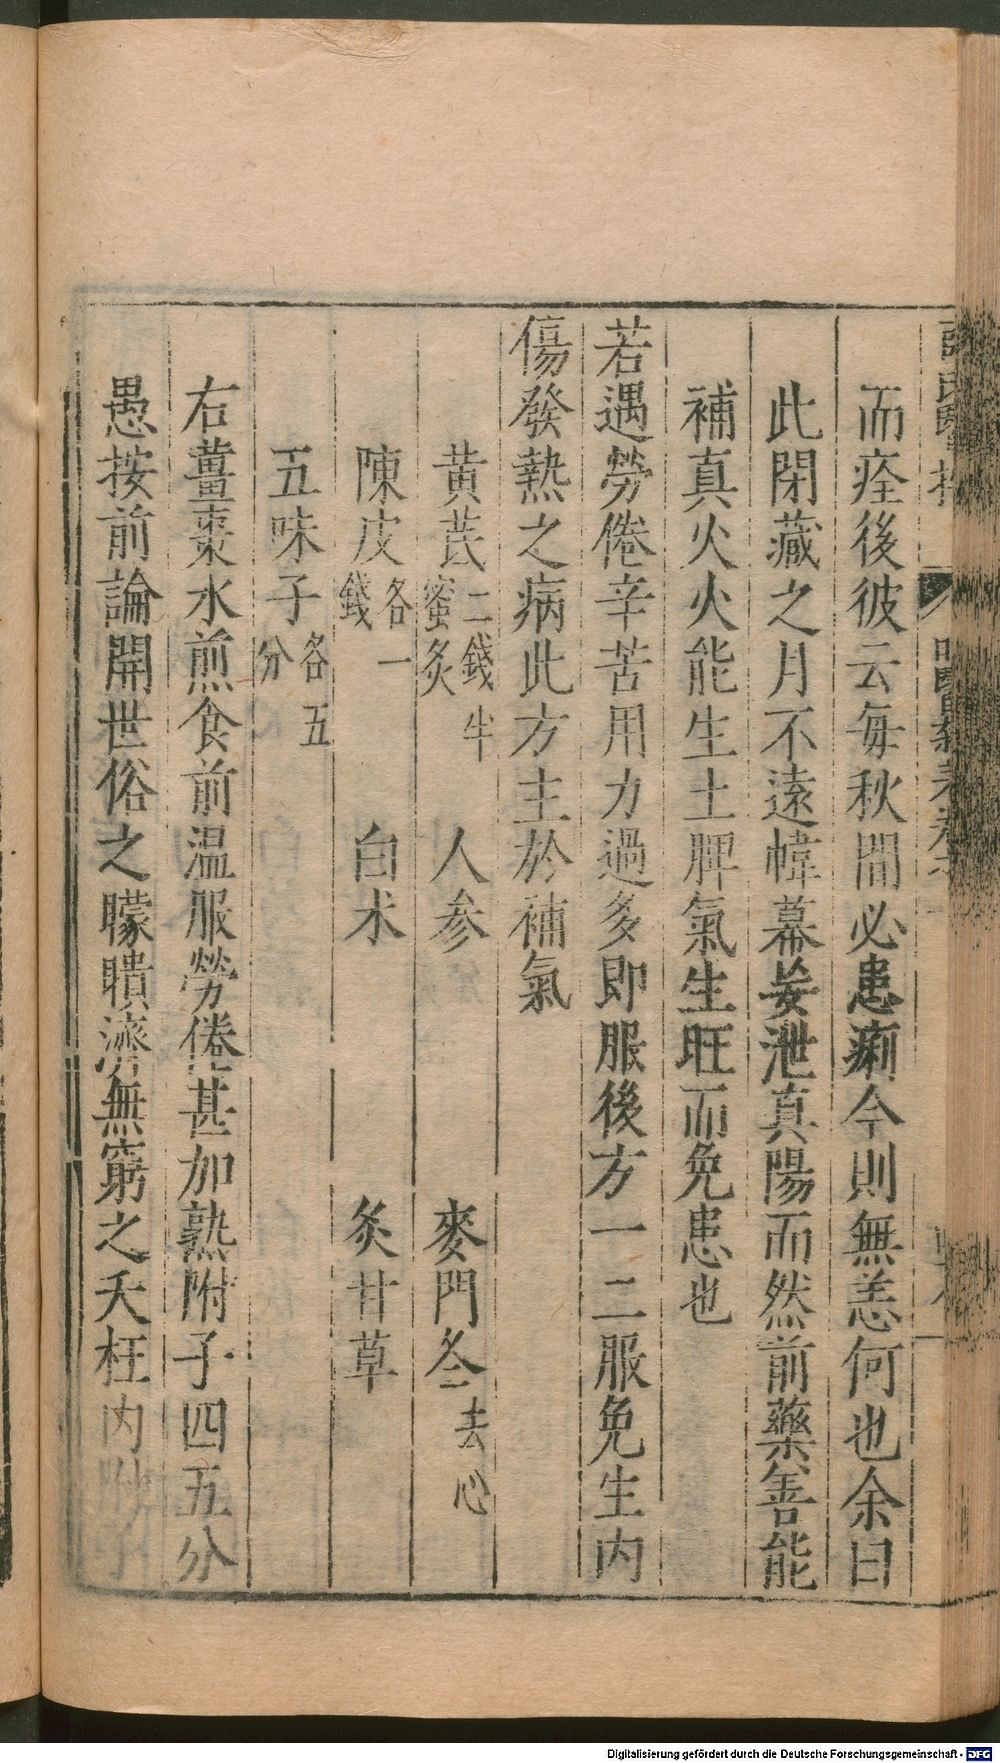 而痊後彼云每秋間必患痢今則無恙何也余曰
此閉藏之月不遠幃幕妄泄真陽而然前藥善能
補真火火能生土脾氣生旺而免患也
若遇勞倦辛苦用力過多即服後方一二服免生内
傷發熱之病此方主於補氣
黄芪二錢半蜜炙 人參 麥門冬去心
陳皮各一錢 白朮 炙甘草
五味子各五分
右薑棗水煎食前温服勞倦甚加熟附子四五分
愚按前論開世俗之矇瞶濟無窮之夭枉内附子
Digitalisierung gefördert durch die Deutsche Forschungsgemeinschaft - DFG